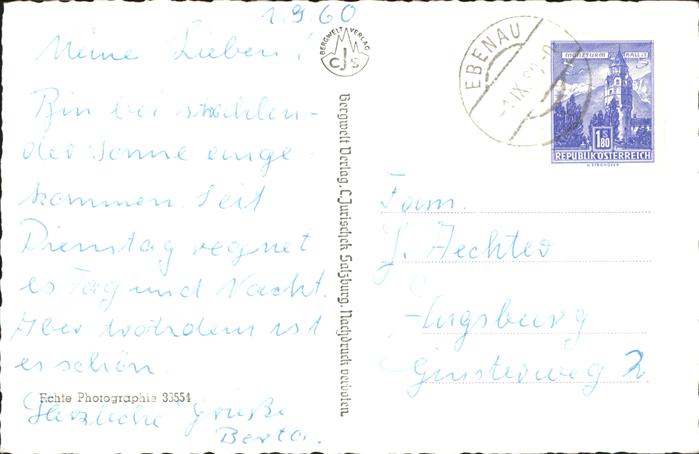 1.9.60
Meine Lieben!
Bin bei strahlen-
der Sonne einge-
kommen. Seit
Dienstag regnet
es Tag und Nacht.
Aber trotzdem ist
es schön.
Herzliche Grüße
Berta.
Echte Photographie 33554
BERGWELT VERLAG
CJS
Bergwelt Verlag, C. Jurischek Salzburg. Nachdruck verboten
EBENAU
-1.IX.60
MÜNZTURM HALL i.T.
1 S 80
REPUBLIK ÖSTERREICH
Fam.
J. Aechter
Augsburg
Ginsterweg 2